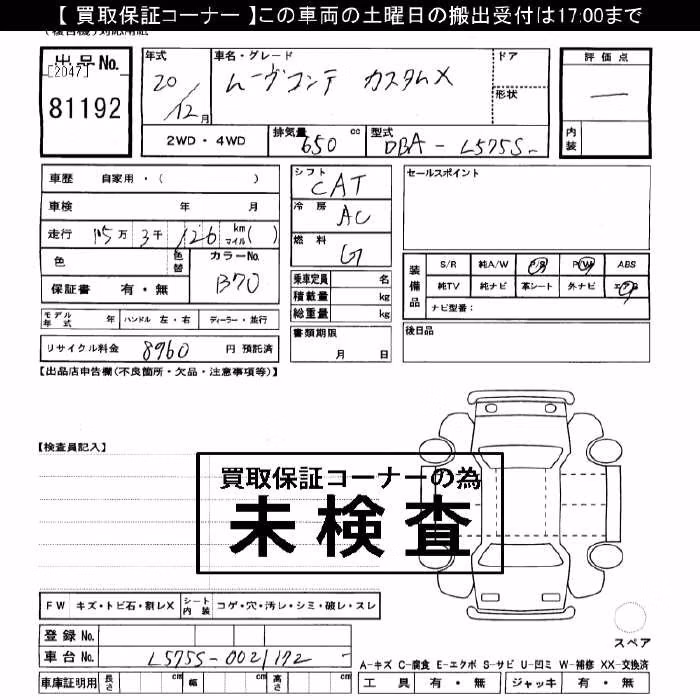 【 買取保証コーナー 】この車両の土曜日の搬出受付は17:00まで
出品No.
[2047]
81192
年式
20/12月
車名・グレード
ムーヴコンテ カスタムX
ドア
形状
評価点
—
内装
2WD・4WD
排気量 650 cc
型式 DBA-L575S-
車歴 自家用・( )
車検 年 月
走行 万 3千 126 km マイル( )
色
色替
カラーNo.
B70
保証書 有・無
シフト
CAT
冷房
AC
燃料
G
乗車定員 名
積載量 kg
総重量 kg
セールスポイント
装備品
S/R 純A/W P/S P/W ABS
純TV 純ナビ 革シート 外ナビ エアB
ナビ型番:
モデル年式 年 ハンドル 左・右 ディーラー・並行
リサイクル料金 8960 円 預託済
書類期限
月 日
後日品
【出品店申告欄(不良箇所・欠品・注意事項等)】
【検査員記入】
買取保証コーナーの為
未検査
FW キズ・トビ石・割レX シート内装 コゲ・穴・汚レ・シミ・破レ・スレ
登録No.
車台No. L575S-0021172
車庫証明用 長さ cm 幅 cm 高さ cm
スペア
A-キズ C-腐食 E-エクボ S-サビ U-凹ミ W-補修 XX-交換済
工具 有・無 ジャッキ 有・無